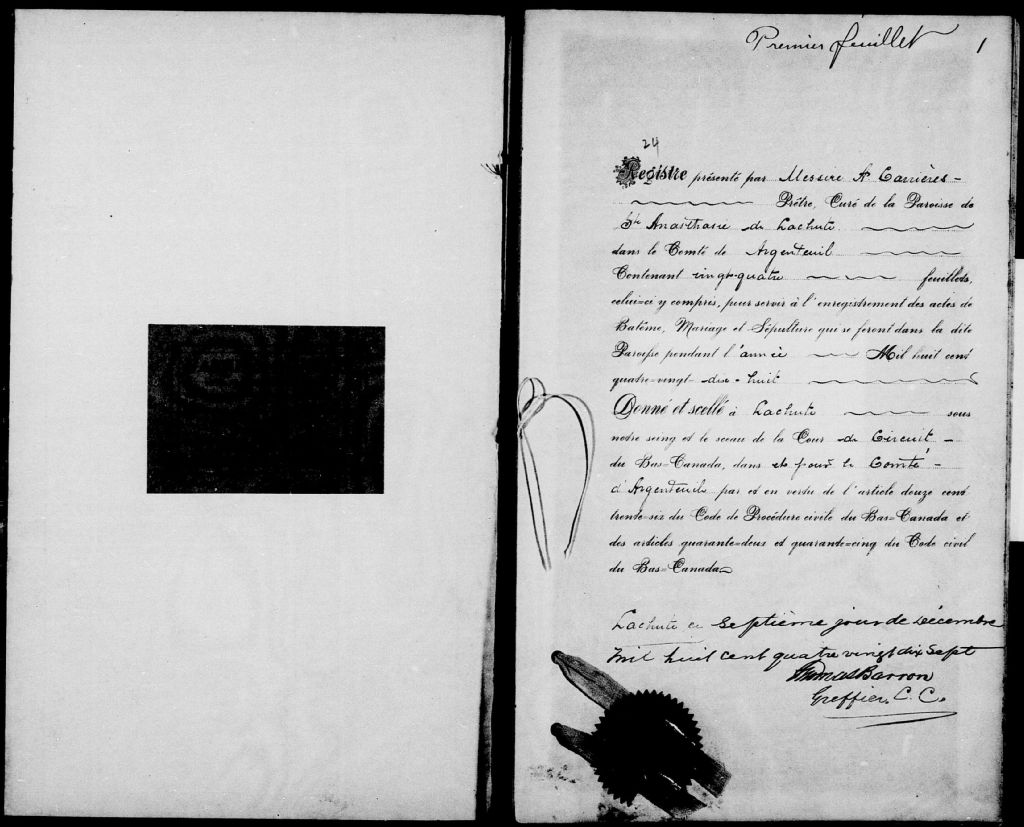 Premier feuillet 1
24
Registre présenté par Messire A. Carrières -
Prêtre, Curé de la Paroisse de
Ste Anasthasie de Lachute
dans le Comté de Argenteuil
Contenant vingt-quatre feuillets,
celui=ci y compris, pour servir à l'enregistrement des actes de
Batême, Mariage et Sépulture qui se feront dans la dite
Paroisse pendant l'année Mil huit cent
quatre=vingt-dix-huit
Donné et scellé à Lachute sous
notre seing et le sceau de la Cour de Circuit -
du Bas=Canada, dans et pour le Comté -
d'Argenteuil par et en vertu de l'article douze cent
trente=six du Code de Procédure civile du Bas=Canada et
des articles quarante=deux et quarante=cinq du Code civil
du Bas=Canada
Lachute ce septième jour de Décembre
mil huit cent quatre vingt dix sept
Thomas Barron
Greffier C. C.